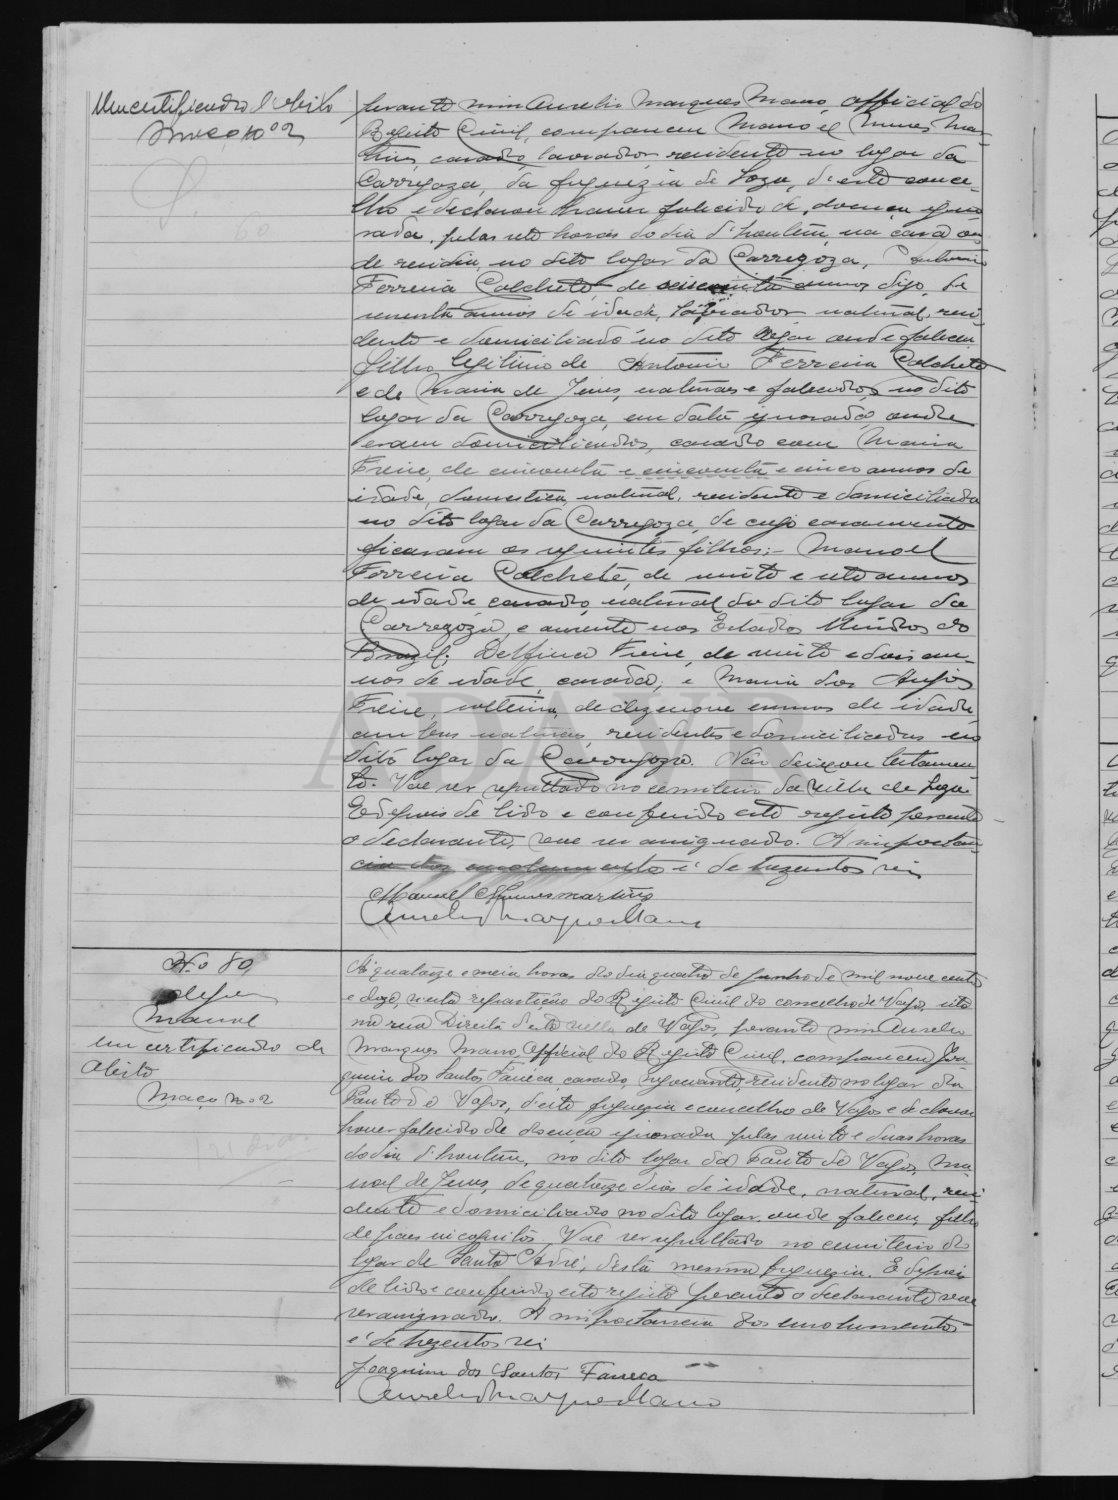 Um certificado d'obito
Maço nº 2
perante mim Aurelio Marques Mano, official do
Registo Civil, compareceu Manoel Nunes Mar-
tins, casado, lavrador residente no logar da
Carregoza, da freguezia de Soza, d'este conce-
lho e declarou haver falecido de doença igno-
rada, pelas sete horas do dia d'hontem, na casa on-
de residia, no dito logar da Carregoza, Antonio
Ferreira Calchete de annos digo, se-
senta annos de idade, lavrador natural, resi-
dente e domiciliado no dito logar onde faleceu
filho legitimo de Antonio Ferreira Calchete
e de Maria de Jesus, naturaes e falecidos, no dito
logar da Carregoza, em data ignorada, onde
eram domiciliados, casado com Maria
Freire, de cincoenta e cincoenta e cinco annos de
idade, domestica, natural, residente e domiciliada
no dito logar da Carregoza, de cujo casamento
ficaram os seguintes filhos:- Manoel
Ferreira Calchete, de vinte e sete annos
de idade casado, natural do dito logar da
Carregoza, e ausente nos Estados Unidos do
Brazil; Delfina Freire, de vinte e dois an-
nos de idade, casada; e Maria dos Anjos
Freire, solteira, de dezenove annos de idade,
ambas naturais, residentes e domiciliadas no
dito logar da Carregoza. Não deixou testamen-
to. Vae ser sepultado no cemiterio da villa de Soza
E depois de lido e conferido este registo perante
o declarante, vae ser assignado. A importan-
cia dos emolumentos é de trezentos reis
Manuel Nunes Martins
Aurelio Marques Mano
ADAVR
N.o 80
Manoel
Um certificado de
obito
Maço no 2
Ás quatorze e meia horas do dia quatro de Junho de mil nove centos
e doze, nesta repartição do Registo Civil do concelho de Vagos, sita
na rua Direita d'esta villa de Vagos, perante mim Aurelio
Marques Mano, Official do Registo Civil, compareceu Joa-
quim dos Santos Faneca, casado, negociante, residente no logar da
Ponte de Vagos, d'esta freguezia e concelho de Vagos e declarou
haver falecido de doença ignorada pelas vinte e duas horas
do dia d'hontem, no dito logar da Ponte de Vagos, Ma-
noel de Jesus, de quatorze dias de idade, natural, resi-
dente e domiciliado no dito logar, onde faleceu, filho
de paes incognitos. Vae ser sepultado no cemiterio do
logar de Santo André, desta mesma freguezia. E depois
de lido e conferido, este registo perante o declarante vae
ser assignado. A importancia dos emolumentos
é de trezentos reis
Joaquim dos Santos Faneca
Aurelio Marques Mano